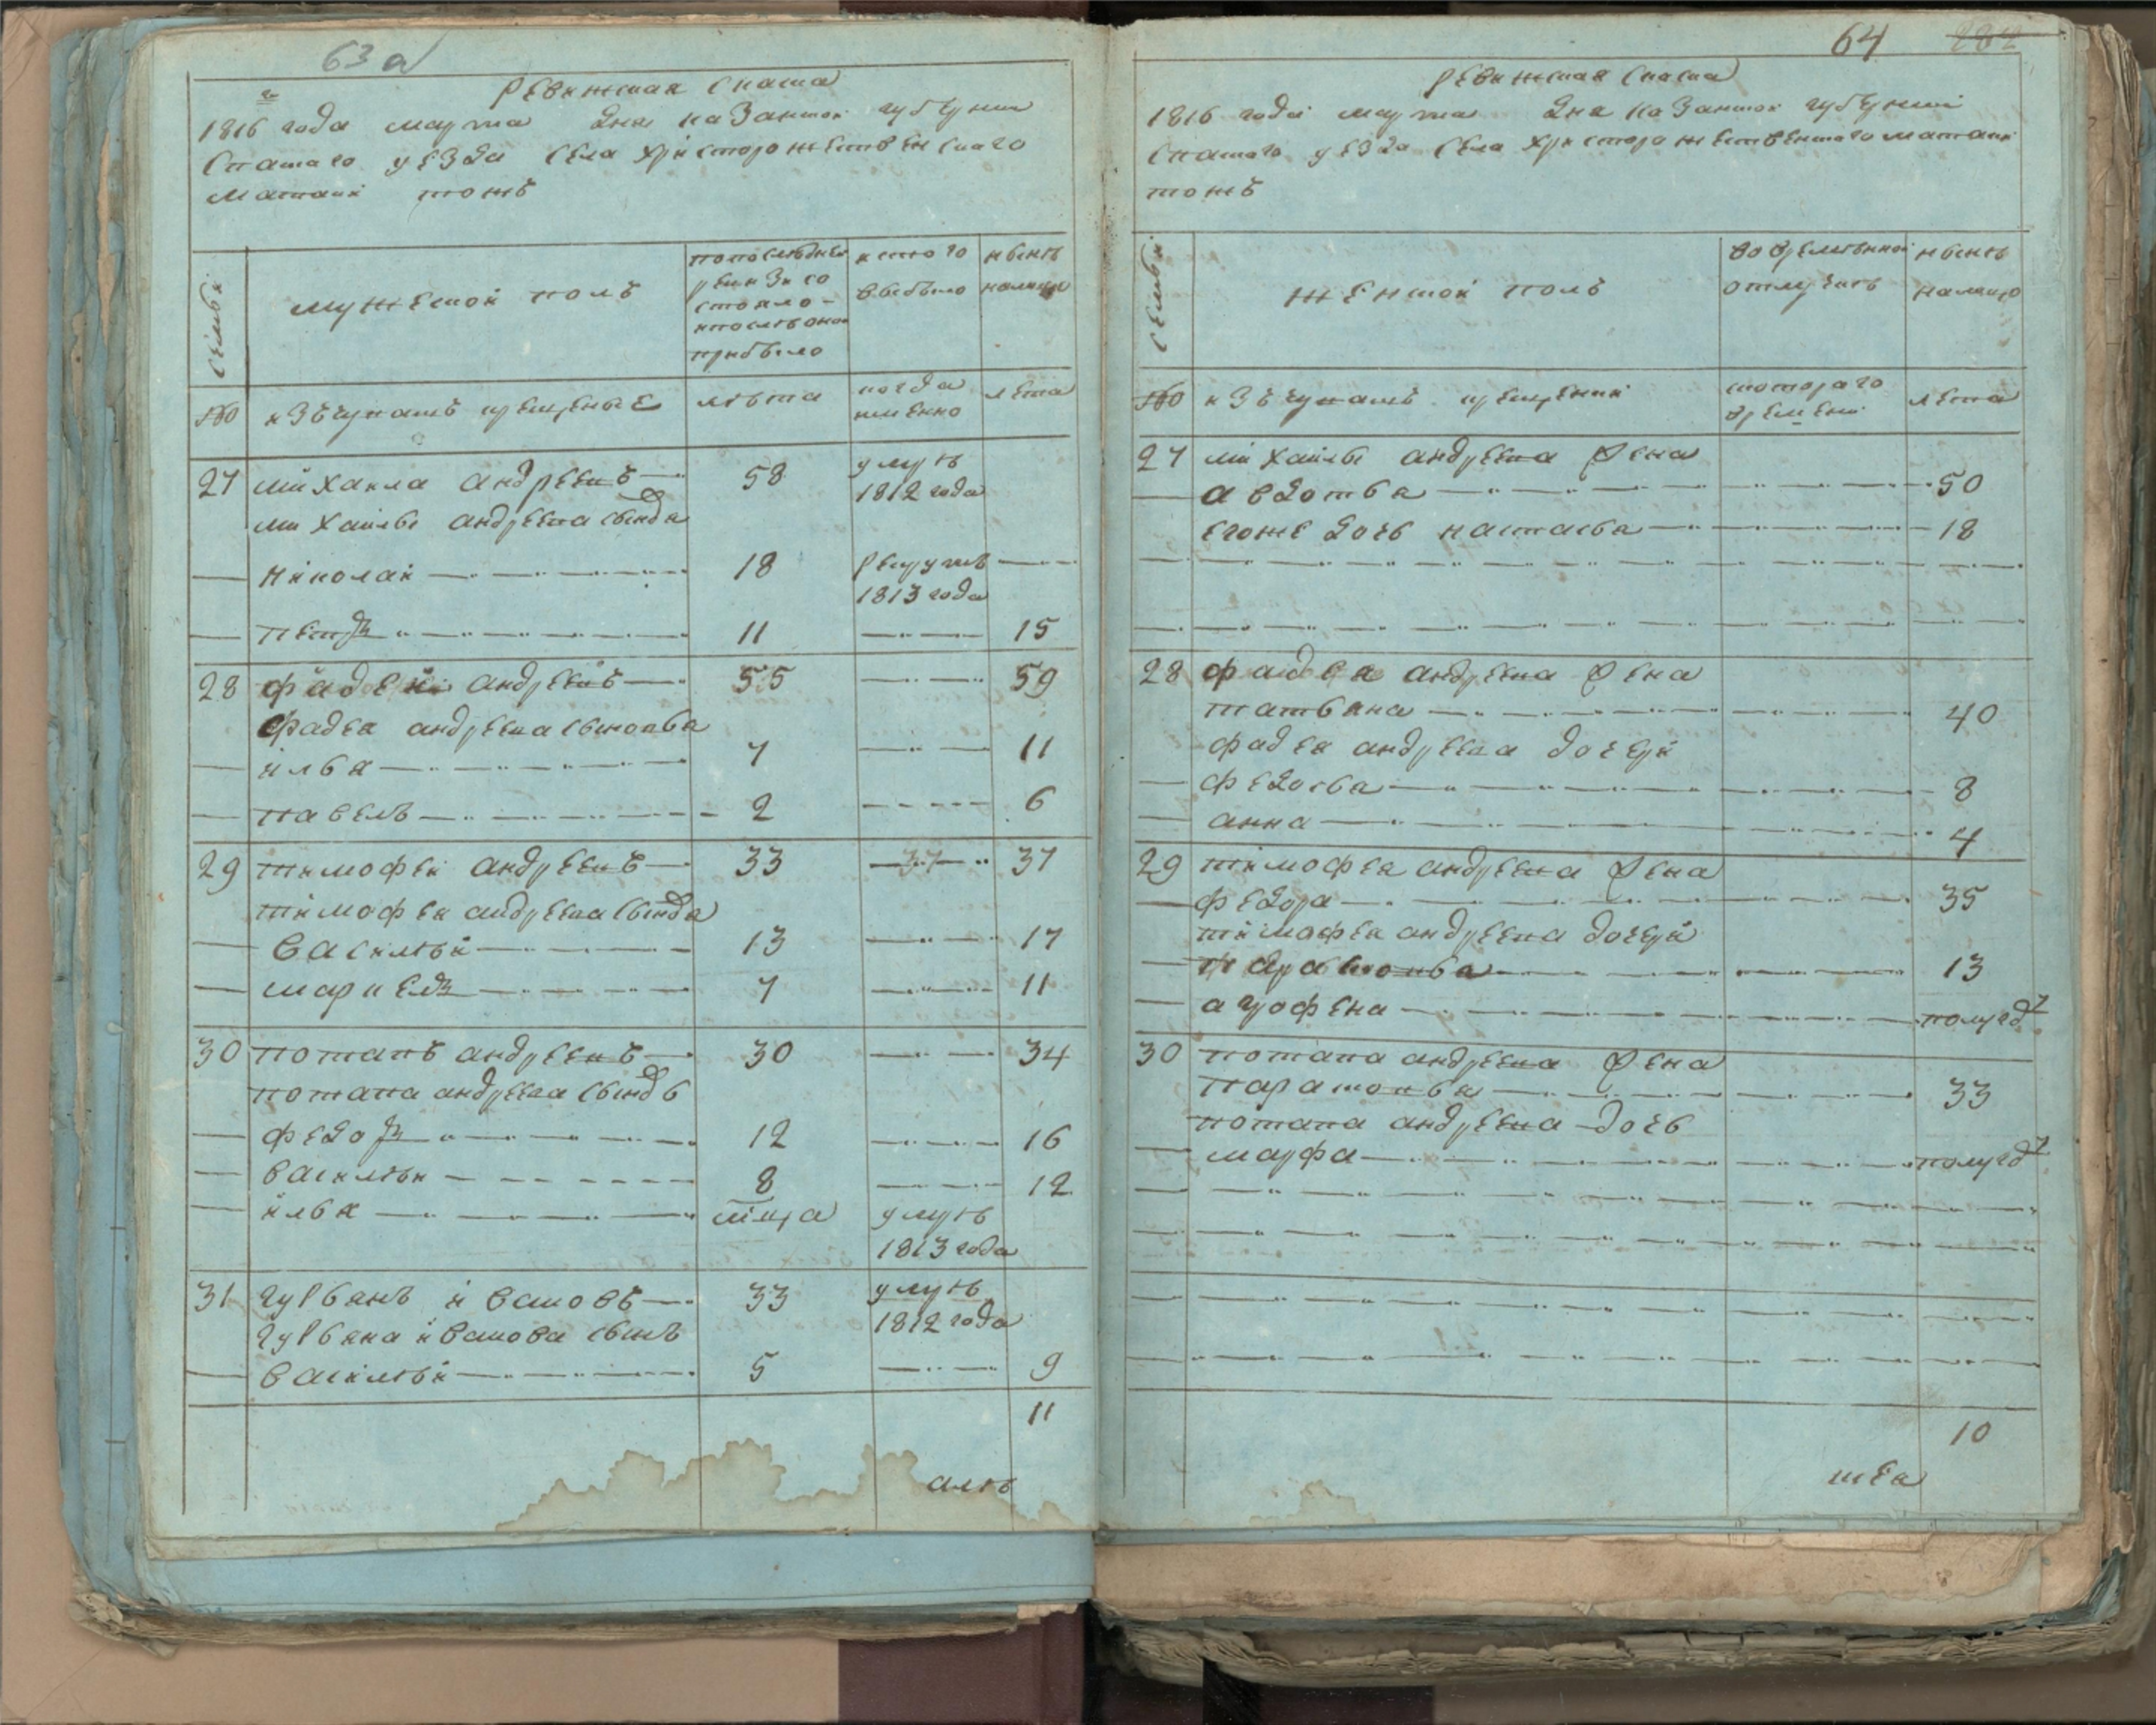 63а
Ревижская скаска
1816 года марта дня казанской губернии
Спаскаго уезда села христорожественскаго
матаки тожъ
семьи
мужеской полъ
попоследней
ревизи со
стояло
ипосле оной
прибыло
исто го
выбыло
ныне
налицо
№
изъ чувашъ крещеные
лета
когда
именно
лета
27 михаила андреевъ 58 умре
1812 года
михайлы андреева сында
николай 18 рекрутъ
1813 года
петръ 11 15
28 фадей андреевъ 55 59
фадея андреева сыновья
илья 7 11
павелъ 2 6
29 тимофей андреевъ 33 37 37
тимофея андреева сында
василей 13 17
маркелъ 7 11
30 потапъ андреевъ 30 34
потапа андреева сынд
федоръ 12 16
василеи 8 12
илья умре
1813 года
31 ивановъ 33 умре
1812 года
иванова сынъ
василей 5 9
11
64 282
Ревижская скаска
1816 года марта дня казанской губернии
спаскаго уезда села христорожественскаго матаки
тожъ
семьи
женской полъ
во временной
отлучке
ныне
налицо
№
изъ чувашъ крещении
котораго
времени
лета
27 михайлы андреева жена
авдотья 50
егоже дочь настасья 18
28 фадея андреева жена
татьяна 40
фадея андреева дочери
федосья 8
анна 4
29 тимофея андреева жена
федора 35
тимофея андреева дочери
13
агрофена полугод
30 потапа андреева жена
парасковья 33
потапа андреева дочь
марфа полугод
10